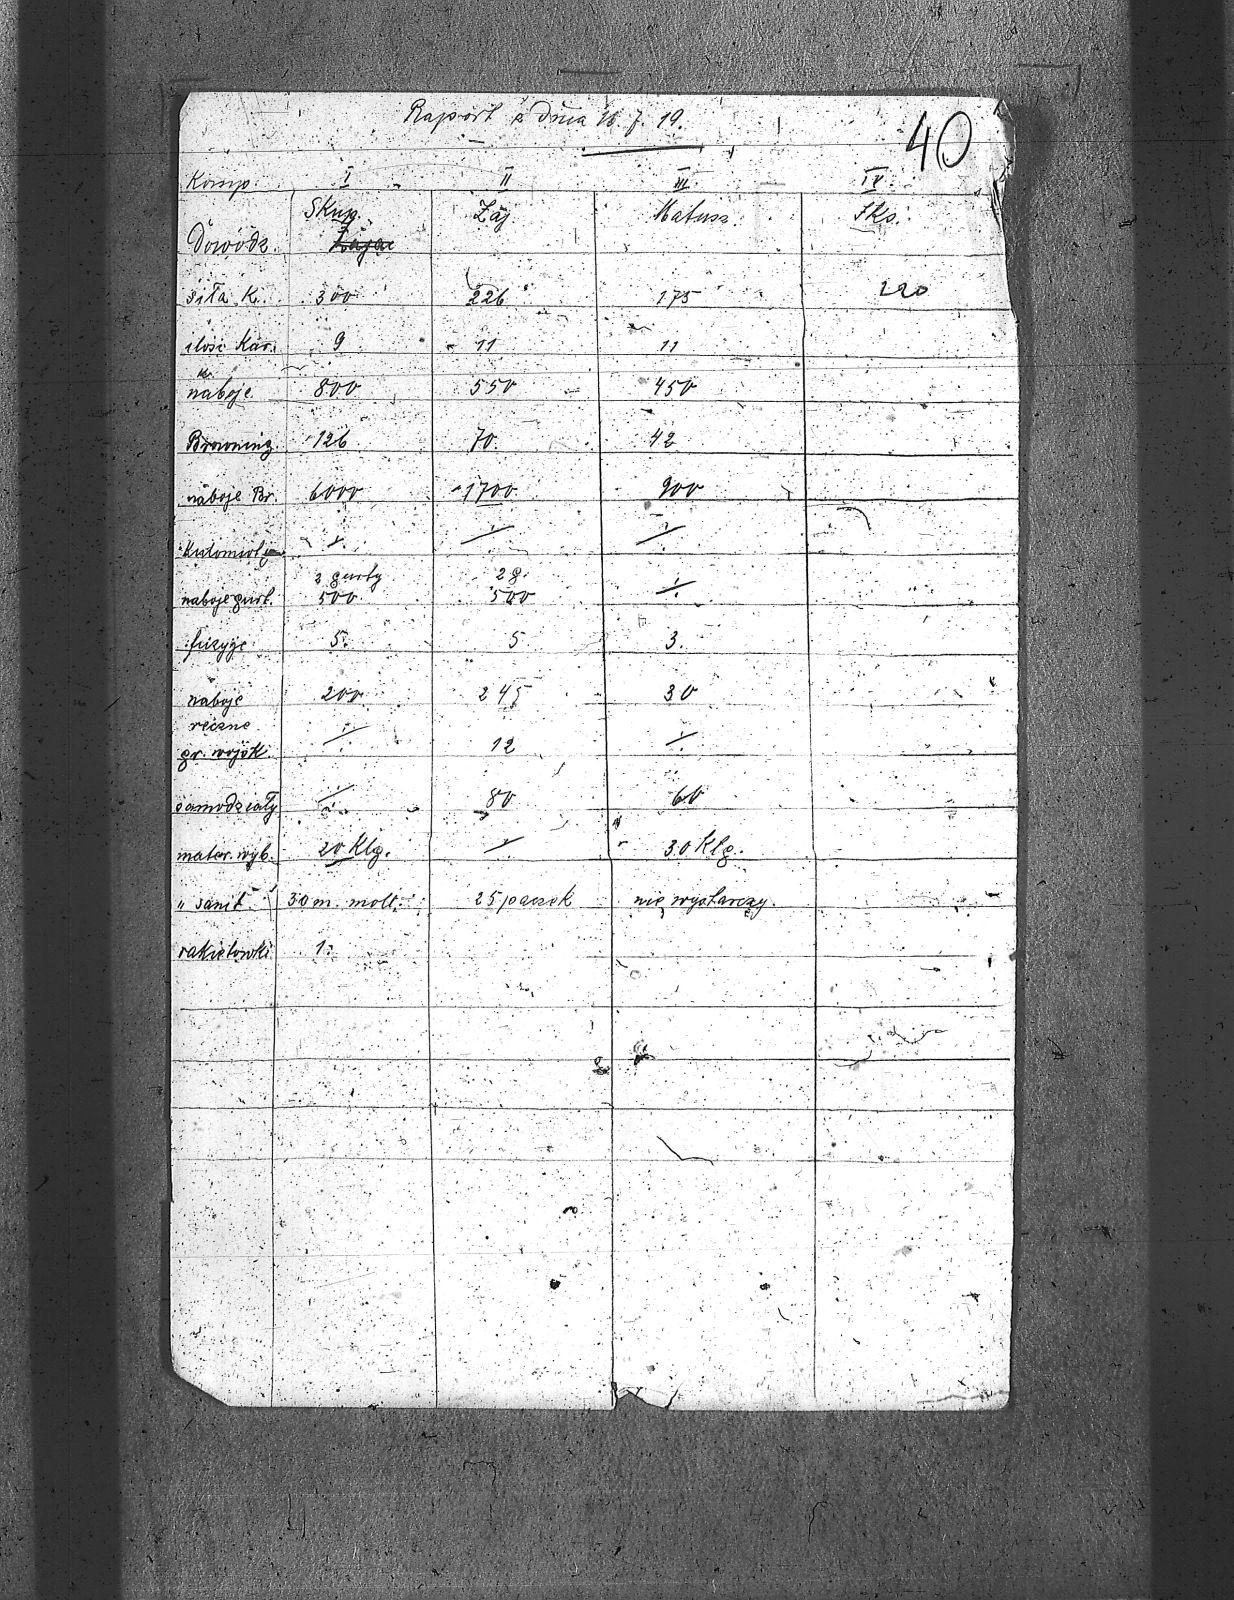 Raport z dnia 16 7. 19.
40
Komp. I II III. IV.
Dowódz. Skup. Zając Zaj Matusz. Iks.
siła K. 300 226 175 220
ilość Kar. 9 11 11
naboje k. 800 550 450
Browning 126 70. 42
naboje Br. 6000 1700 900
Kulomioty ·/· ·/· ·/·
naboje gurt. 2 gurty 500 2 g. 500 ·/·
fuzyje 5. 5 3.
naboje 200 245 30
ręczne gr. wojsk. ·/· 12 ·/·
samodziały ·/· 80 60
mater. wyb. 20 Klg. ·/· 30 Klg.
" sanit. 30 m. moll. 25 paczek nie wystarczy.
rakietowki 1.